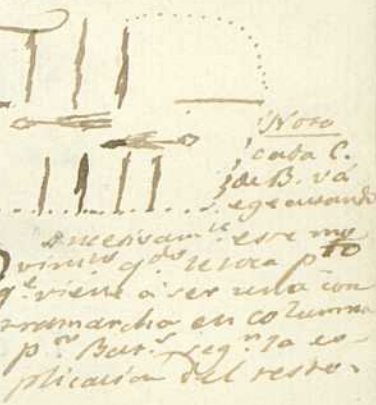 Nota
cada C.
de B. va
egecutando
sucesivam.te este mo
vim.to q.do le toca p.to
q.e viene a ser una con
tramarcha en columna
p.r Bat.s seg.n la es-
plicacion del resto.